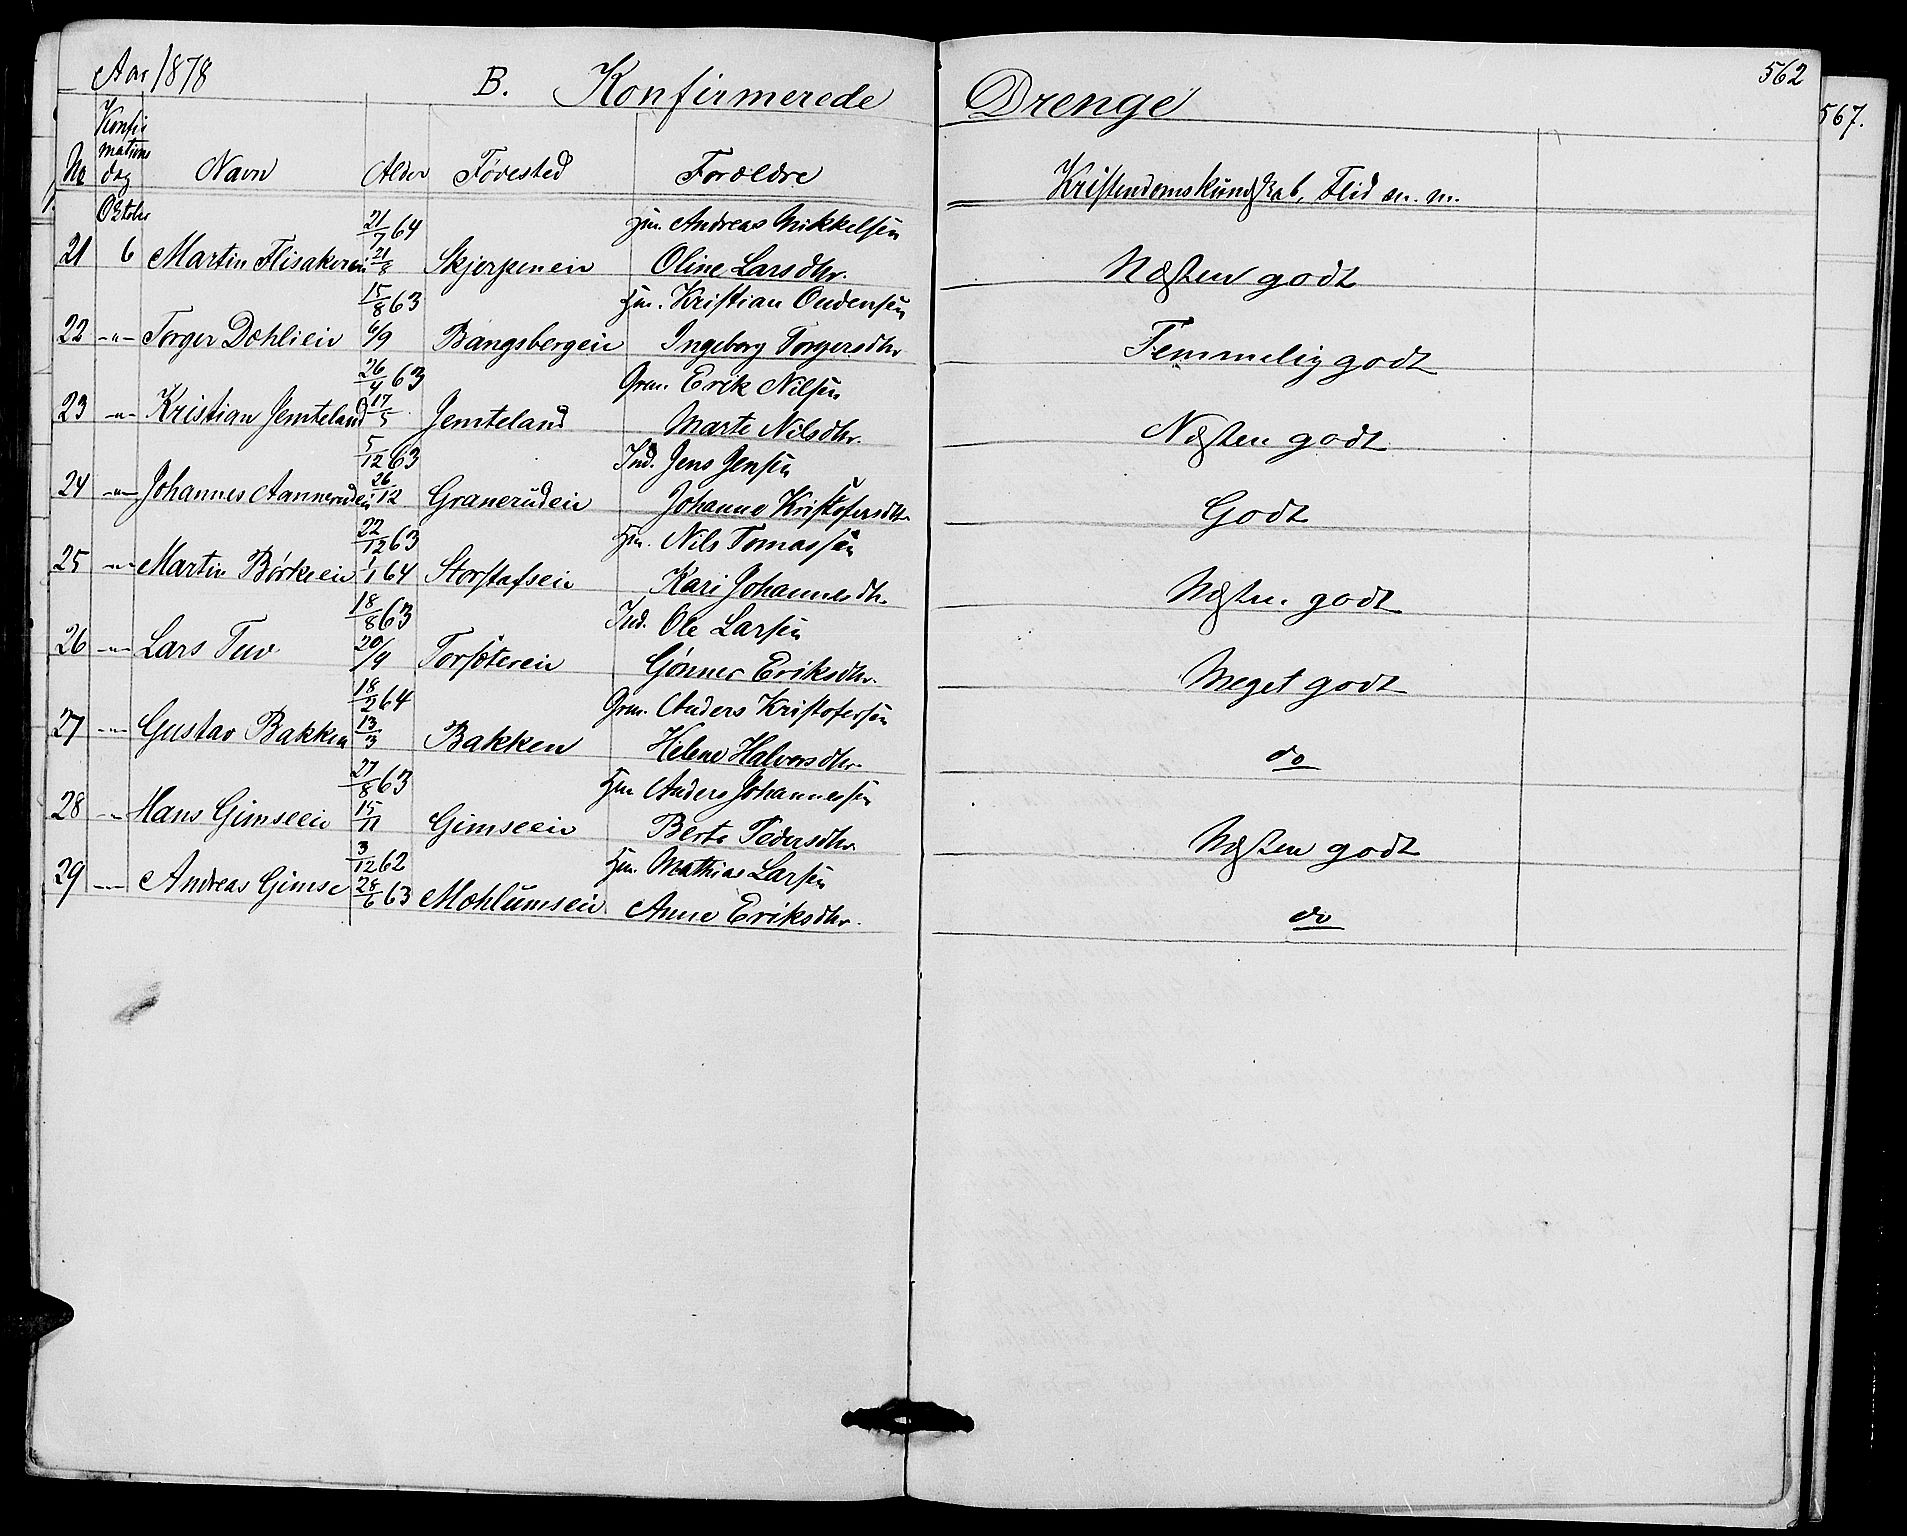 Aar 1878 B. Konfirmerede Drenge 562
567.
No Konfirmations dag Navn Alder Fødested Forældre Kristendomskundskab, Flid m. m.
Oktober
21/7 64 Hm. Andreas Mikkelsen
21 6 Martin Flisakereie 21/8 Skjerpeneie Oline Larsdtr. Næsten godt
15/8 63 Hm. Kristian Oudensen
22 -"- Torger Dæhlieie 6/9 Bangsbergeie Ingeborg Torgersdtr Temmelig godt
26/4 63 Grm. Erik Nilsen
23 -"- Kristian Jemteland 17/5 Jemteland Marte Nilsdtr. Næsten godt
5/12 63 Ind. Jens Jensen
24 -"- Johannes Aannerudeie 26/12 Granerudeie Johanne Kristofersdtr Godt
22/12 63 Hm. Nils Tomassen
25 -"- Martin Børkeeie 1/1 64 Storstafseie Kari Johannesdtr Næsten godt
18/8 63 Ind. Ole Larsen
26 -"- Lars Tuv 20/9 Torsætereie Gønner Eriksdtr. Meget godt
18/2 64 Grm. Anders Kristofersen
27 -"- Gustav Bakken 13/3 Bakken Helene Halvorsdtr do
27/8 63 Hm Anders Johannessen
28 -"- Hans Gimseeie 15/11 Gimseeie Berte Pedersdtr Næsten godt
3/12 62 Hm. Mathias Larsen
29 -"- Andreas Gimse 28/6 63 Mæhlumseie Anne Eriksdtr. do